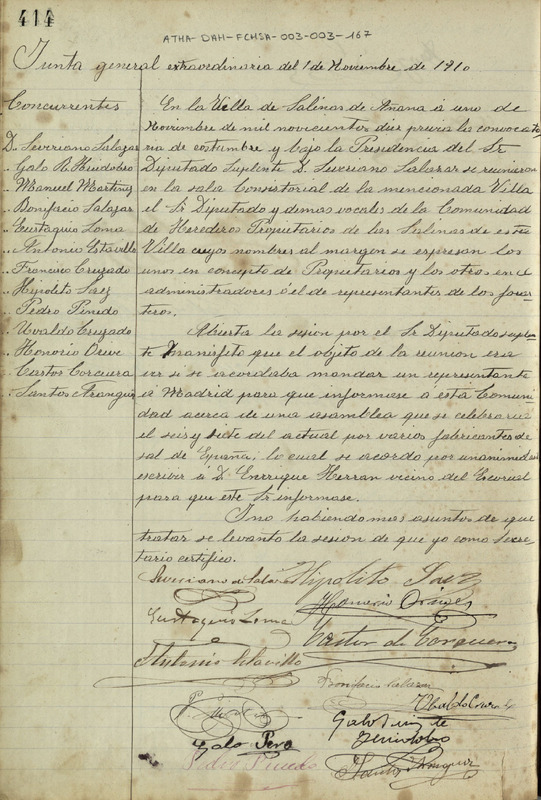 414
ATHA-DAH-FCHSA-003-003-167
Junta general extraordinaria del 1 de Noviembre de 1910
Concurrentes
D. Severiano Salazar
" Galo R. Heudobro
" Manuel Martinez
" Bonifacio Salazar
" Eustaquio Loma
" Antonio Estavillo
" Francisco Cruzado
" Hipolito Saez
" Pedro Pinedo
" Uvaldo Cruzado
" Honorio
" Castor Corcuera
" Santos Frangui
En la Villa de Salinas de Añana á uno de
Noviembre de mil novecientos diez previa la convocato
ria de costumbre y bajo la Presidencia del Sr
Diputado Suplente D. Severiano Salazar se reunieron
en la sala Consistorial de la mencionada Villa
el Sr Diputado y demas vocales de la Comunidad
de Herederos Propietarios de las Salinas de esta
Villa cuyos nombres al margen se expresan los
unos en concepto de Propietarios y los otros en el
administradores ó el de representantes de los foras
teros.
Abierta la sesion por el Sr Diputado suplen
te manisfeto que el objeto de la reunion era
ver si se acordaba mandar un representante
á Madrid para que informase a esta Comuni
dad acerca de una asamblea que se celebrará
el seis y siete del actual por varios fabricantes de
sal de España; lo cual se acordo por unanimidad
escribir á D. Enrrique Herran vecino del Escurial
para que este Sr informase.
I no habiendo mas asuntos de que
tratar se levanto la sesion de que yo como Secre
tario certifico.
Severiano de Salazar Hipolito Saez
Honorio
Eustaquio Loma
Castor de Corcuera
Antonio Estavillo
Bonifacio Salazar
Ubaldo Cruzado
Galo Ruiz de
Heudobro
Galo Pero
Pedro Pinedo
Santos Frangui